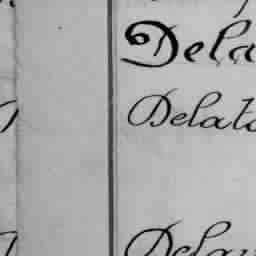 Dela
Delato
Delau